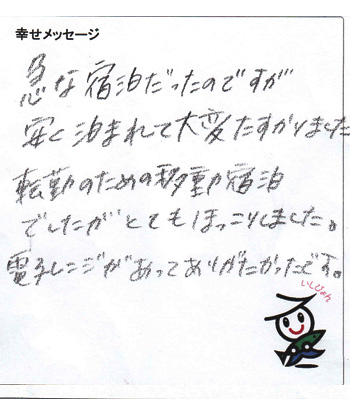 幸せメッセージ
急な宿泊だったのですが
安く泊まれて大変たすかりました
転勤のための移動宿泊
でしたがとてもほっこりしました。
電子レンジがあってありがたかったです。
いしぴょん